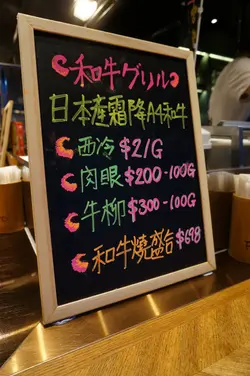 和牛グリル
日本産霜降A4和牛
西冷 $21/G
肉眼 $200-100G
牛柳 $300-100G
和牛燒盛合 $698